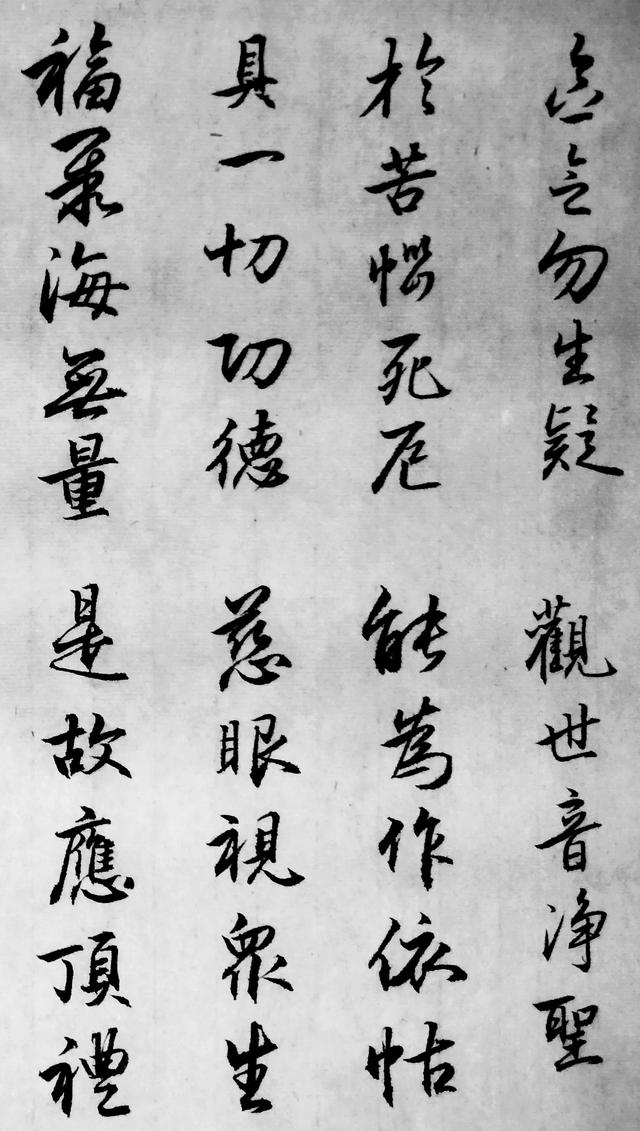 念念勿生疑 觀世音淨聖
於苦惱死厄 能為作依怙
具一切功德 慈眼視眾生
福聚海無量 是故應頂禮